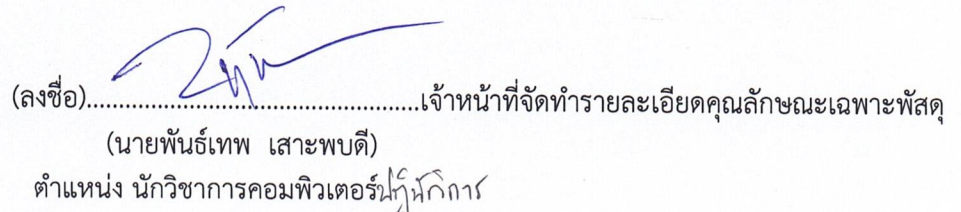 (ลงชื่อ)........................................................เจ้าหน้าที่จัดทำรายละเอียดคุณลักษณะเฉพาะพัสดุ
(นายพันธ์เทพ เสาะพบดี)
ตำแหน่ง นักวิชาการคอมพิวเตอร์ปฏิบัติการ